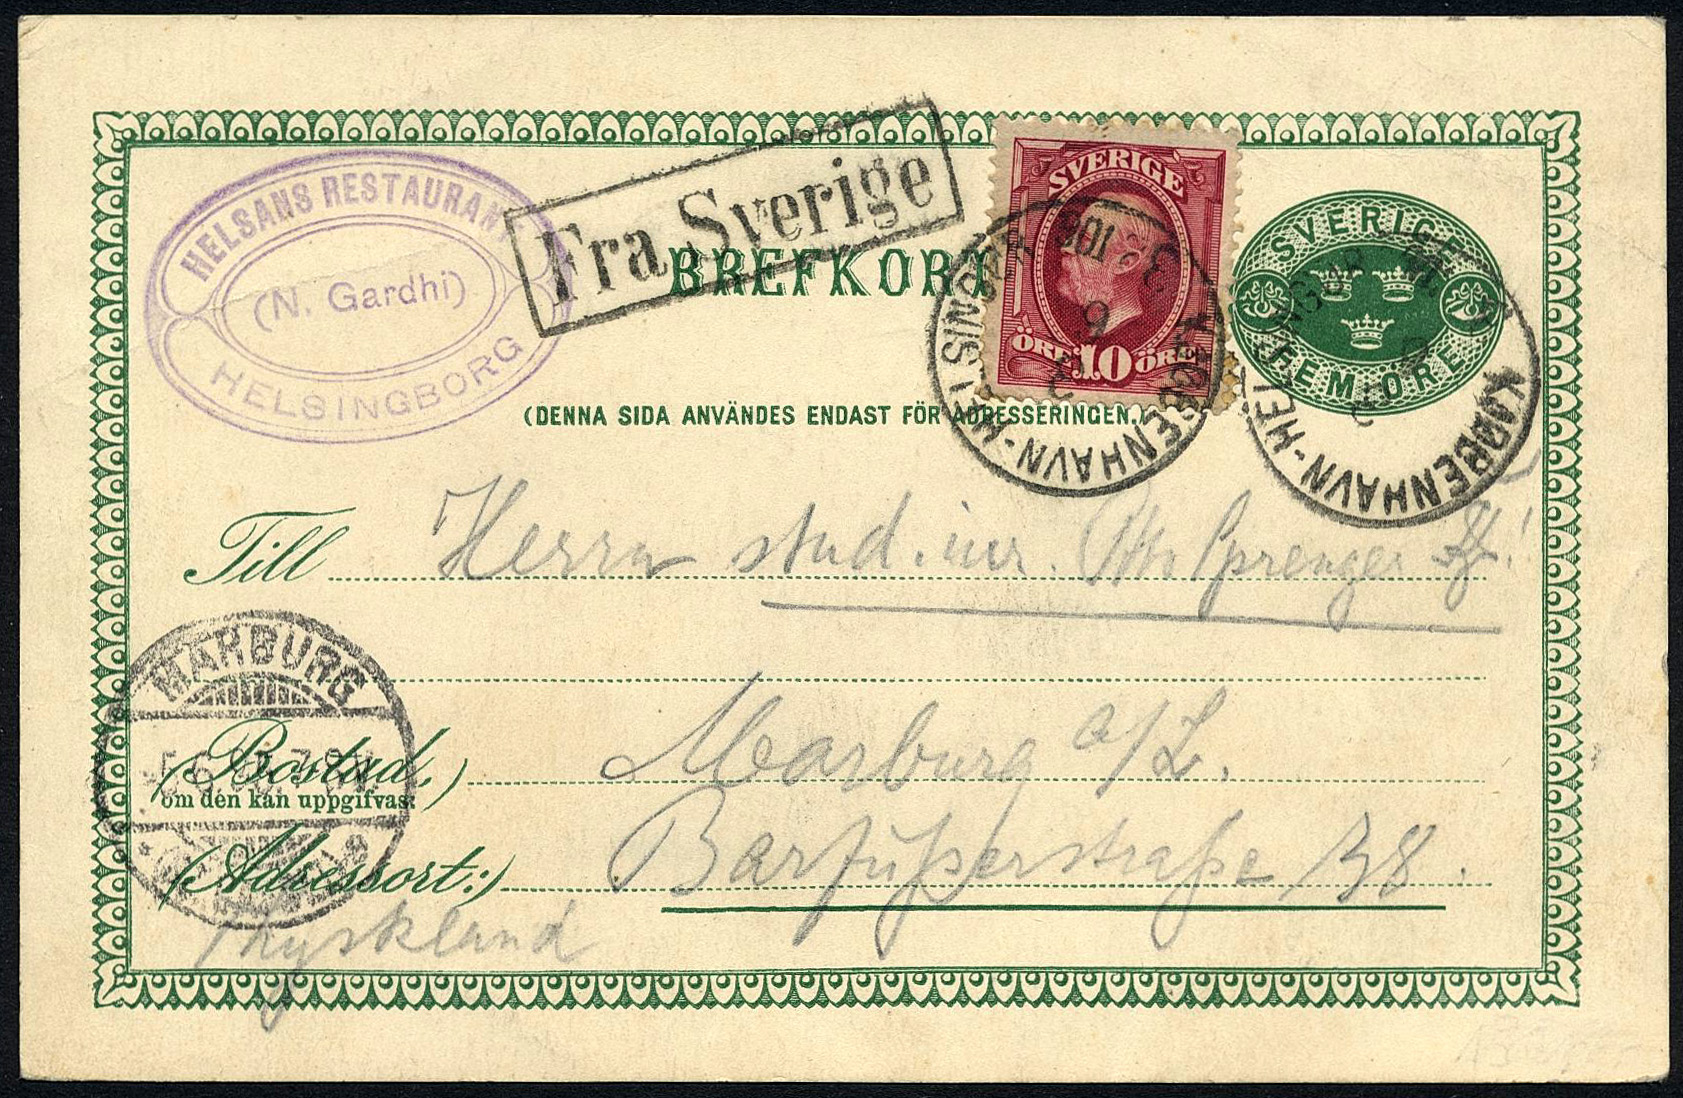 HELSANS RESTAURANT
(N. Gardhi)
HELSINGBORG
Fra Sverige
BREFKORT
SVERIGE
ÖRE 10 ÖRE
SVERIGE
FEM ÖRE
KJØBENHAVN-HELSINGBORG
KJØBENHAVN-HELSINGBORG
(DENNA SIDA ANVÄNDES ENDAST FÖR ADRESSERINGEN.)
Till Herrn stud. iur. Sprenger
MARBURG
5.6. 7-8N
(Bostad,) Marburg a/L.
om den kan uppgifvas:
(Adressort:) Barfüßerstraße 38.
Thyskland